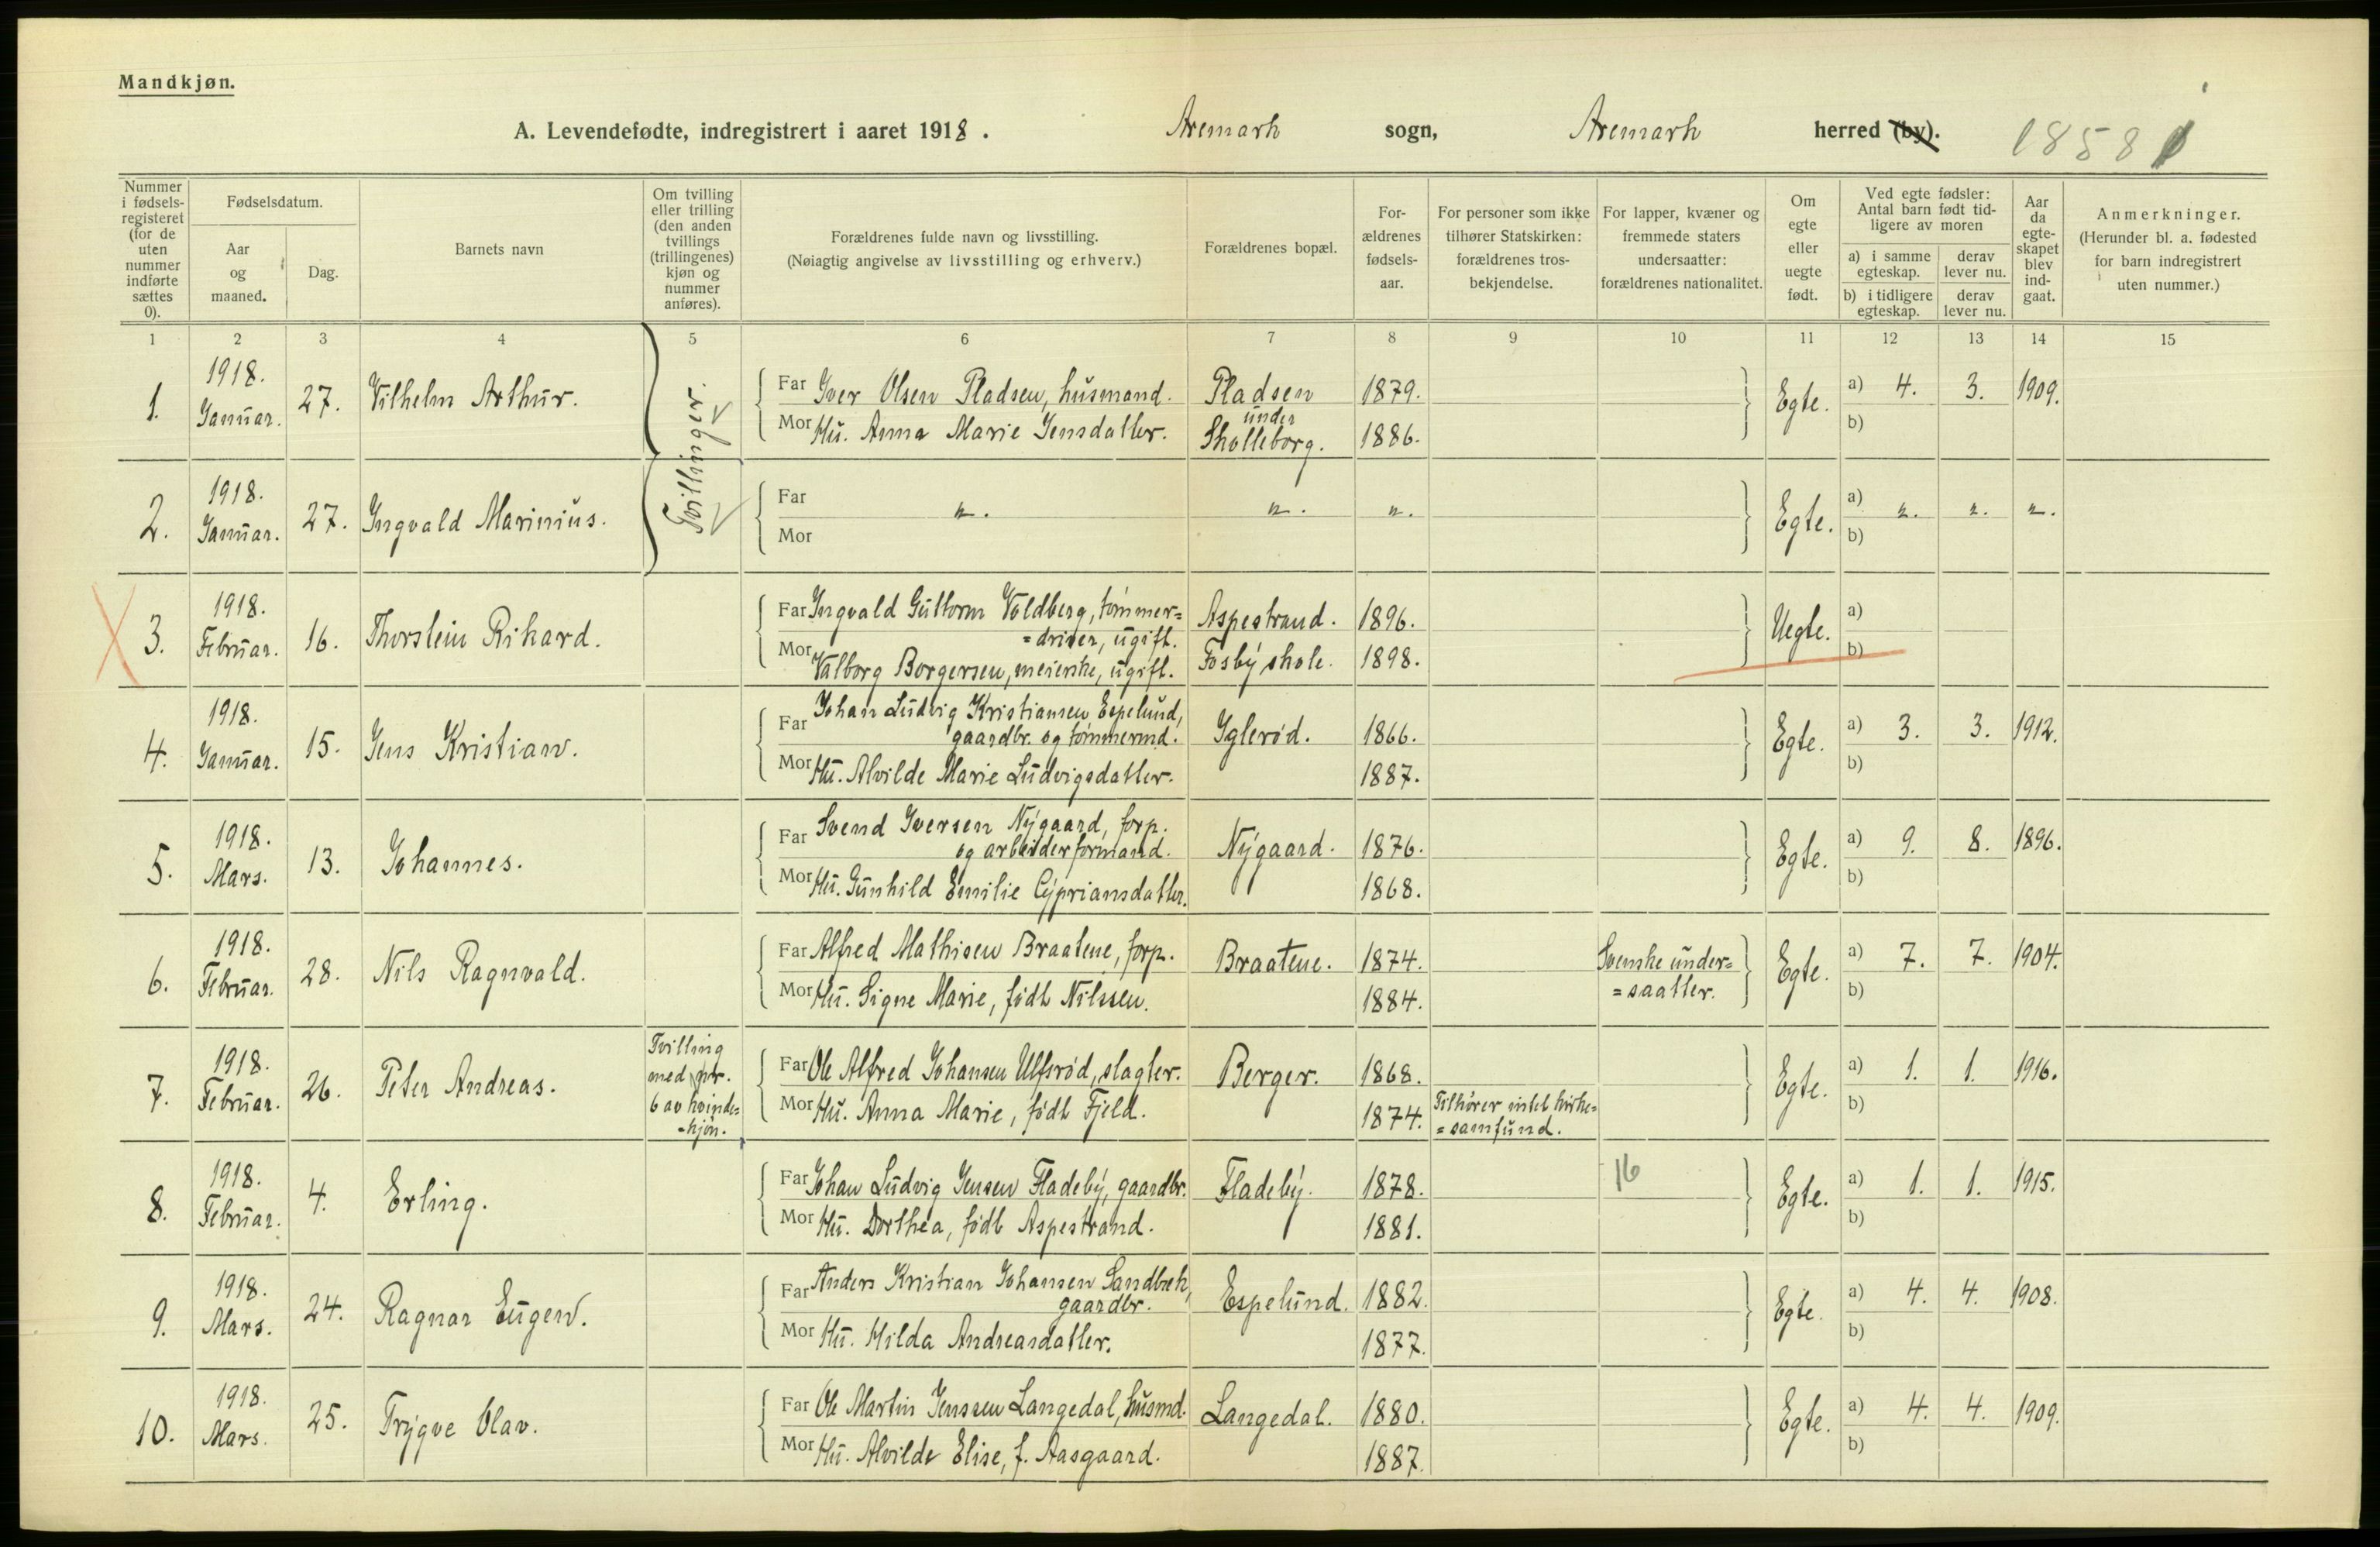 Mandkjøn.
A. Levendefødte, indregistrert i aaret 1918. Aremark sogn, Aremark herred (by). 1858
Nummer i fødselsregisteret (for de uten nummer indførte sættes 0).
Fødselsdatum.
Aar og maaned.
Dag.
Barnets navn
Om tvilling eller trilling (den anden tvillings (trillingenes) kjøn og nummer anføres).
Forældrenes fulde navn og livsstilling.
(Nøiagtig angivelse av livsstilling og erhverv.)
Forældrenes bopæl.
For-
ældrenes
fødsels-
aar.
For personer som ikke
tilhører Statskirken:
forældrenes tros-
bekjendelse.
For lapper, kvæner og
fremmede staters
undersaatter:
forældrenes nationalitet.
Om
egte
eller
uegte
født.
Ved egte fødsler:
Antal barn født tid-
ligere av moren
a) i samme egteskap.
derav lever nu.
b) i tidligere egteskap.
derav lever nu.
Aar
da
egte-
skapet
blev
ind-
gaat.
Anmerkninger.
(Herunder bl. a. fødested
for barn indregistrert
uten nummer.)
1 2 3 4 5 6 7 8 9 10 11 12 13 14 15
1. 1918. Januar. 27. Vilhelm Arthur. Tvillinger.
Far Iver Olsen Pladsen, husmand. Pladsen 1879. Egte. a) 4. 3. 1909.
under
Mor Hu. Anna Marie Jensdatter. Skolleborg. 1886. b)
2. 1918. Januar. 27. Ingvald Marinius.
Far ". ". ". Egte. a) ". ". ".
Mor b)
3. 1918. Februar. 16. Thorstein Rikard.
Far Ingvald Guttorm Voldberg, tømmer= Aspestrand. 1896. Uegte. a)
=driver, ugift.
Mor Valborg Borgersen, meierske, ugift. Fosby skole. 1898. b)
4. 1918. Januar. 15. Jens Kristian.
Far Johan Ludvig Kristiansen Espelund,
gaardbr. og tømmermd. Iglerød. 1866. Egte. a) 3. 3. 1912.
Mor Hu. Alvilde Marie Ludvigsdatter. 1887. b)
5. 1918. Mars. 13. Johannes.
Far Svend Iversen Nygaard, forp.
og arbeiderformand. Nygaard. 1876. Egte. a) 9. 8. 1896.
Mor Hu. Gunhild Emilie Cypriansdatter. 1868. b)
6. 1918. Februar. 28. Nils Ragnvald.
Far Alfred Mathisen Braatene, forp. Braatene. 1874. Svenske under= Egte. a) 7. 7. 1904.
Mor Hu. Signe Marie, født Nilssen. 1884. =saatter. b)
7. 1918. Februar. 26. Peter Andreas.
Tvilling
med nr.
6 av kvinde=
=kjøn.
Far Ole Alfred Johansen Ulfsrød, slagter. Berger. 1868. Egte. a) 1. 1. 1916.
Mor Hu. Anna Marie, født Fjeld. 1874. Tilhører intet kirke= b)
=samfund.
8. 1918. Februar. 4. Erling.
Far Johan Ludvig Jensen Fladeby, gaardbr. Fladeby. 1878. 16 Egte. a) 1. 1. 1915.
Mor Hu. Dorthea, født Aspestrand. 1881. b)
9. 1918. Mars. 24. Ragnar Eugen.
Far Anders Kristian Johansen Sandbæk,
gaardbr. Espelund. 1882. Egte. a) 4. 4. 1908.
Mor Hu. Hilda Andreasdatter. 1877. b)
10. 1918. Mars. 25. Trygve Olav.
Far Ole Martin Jenssen Langedal, husmd. Langedal. 1880. Egte. a) 4. 4. 1909.
Mor Hu. Alvilde Elise, f. Aasgaard. 1887. b)